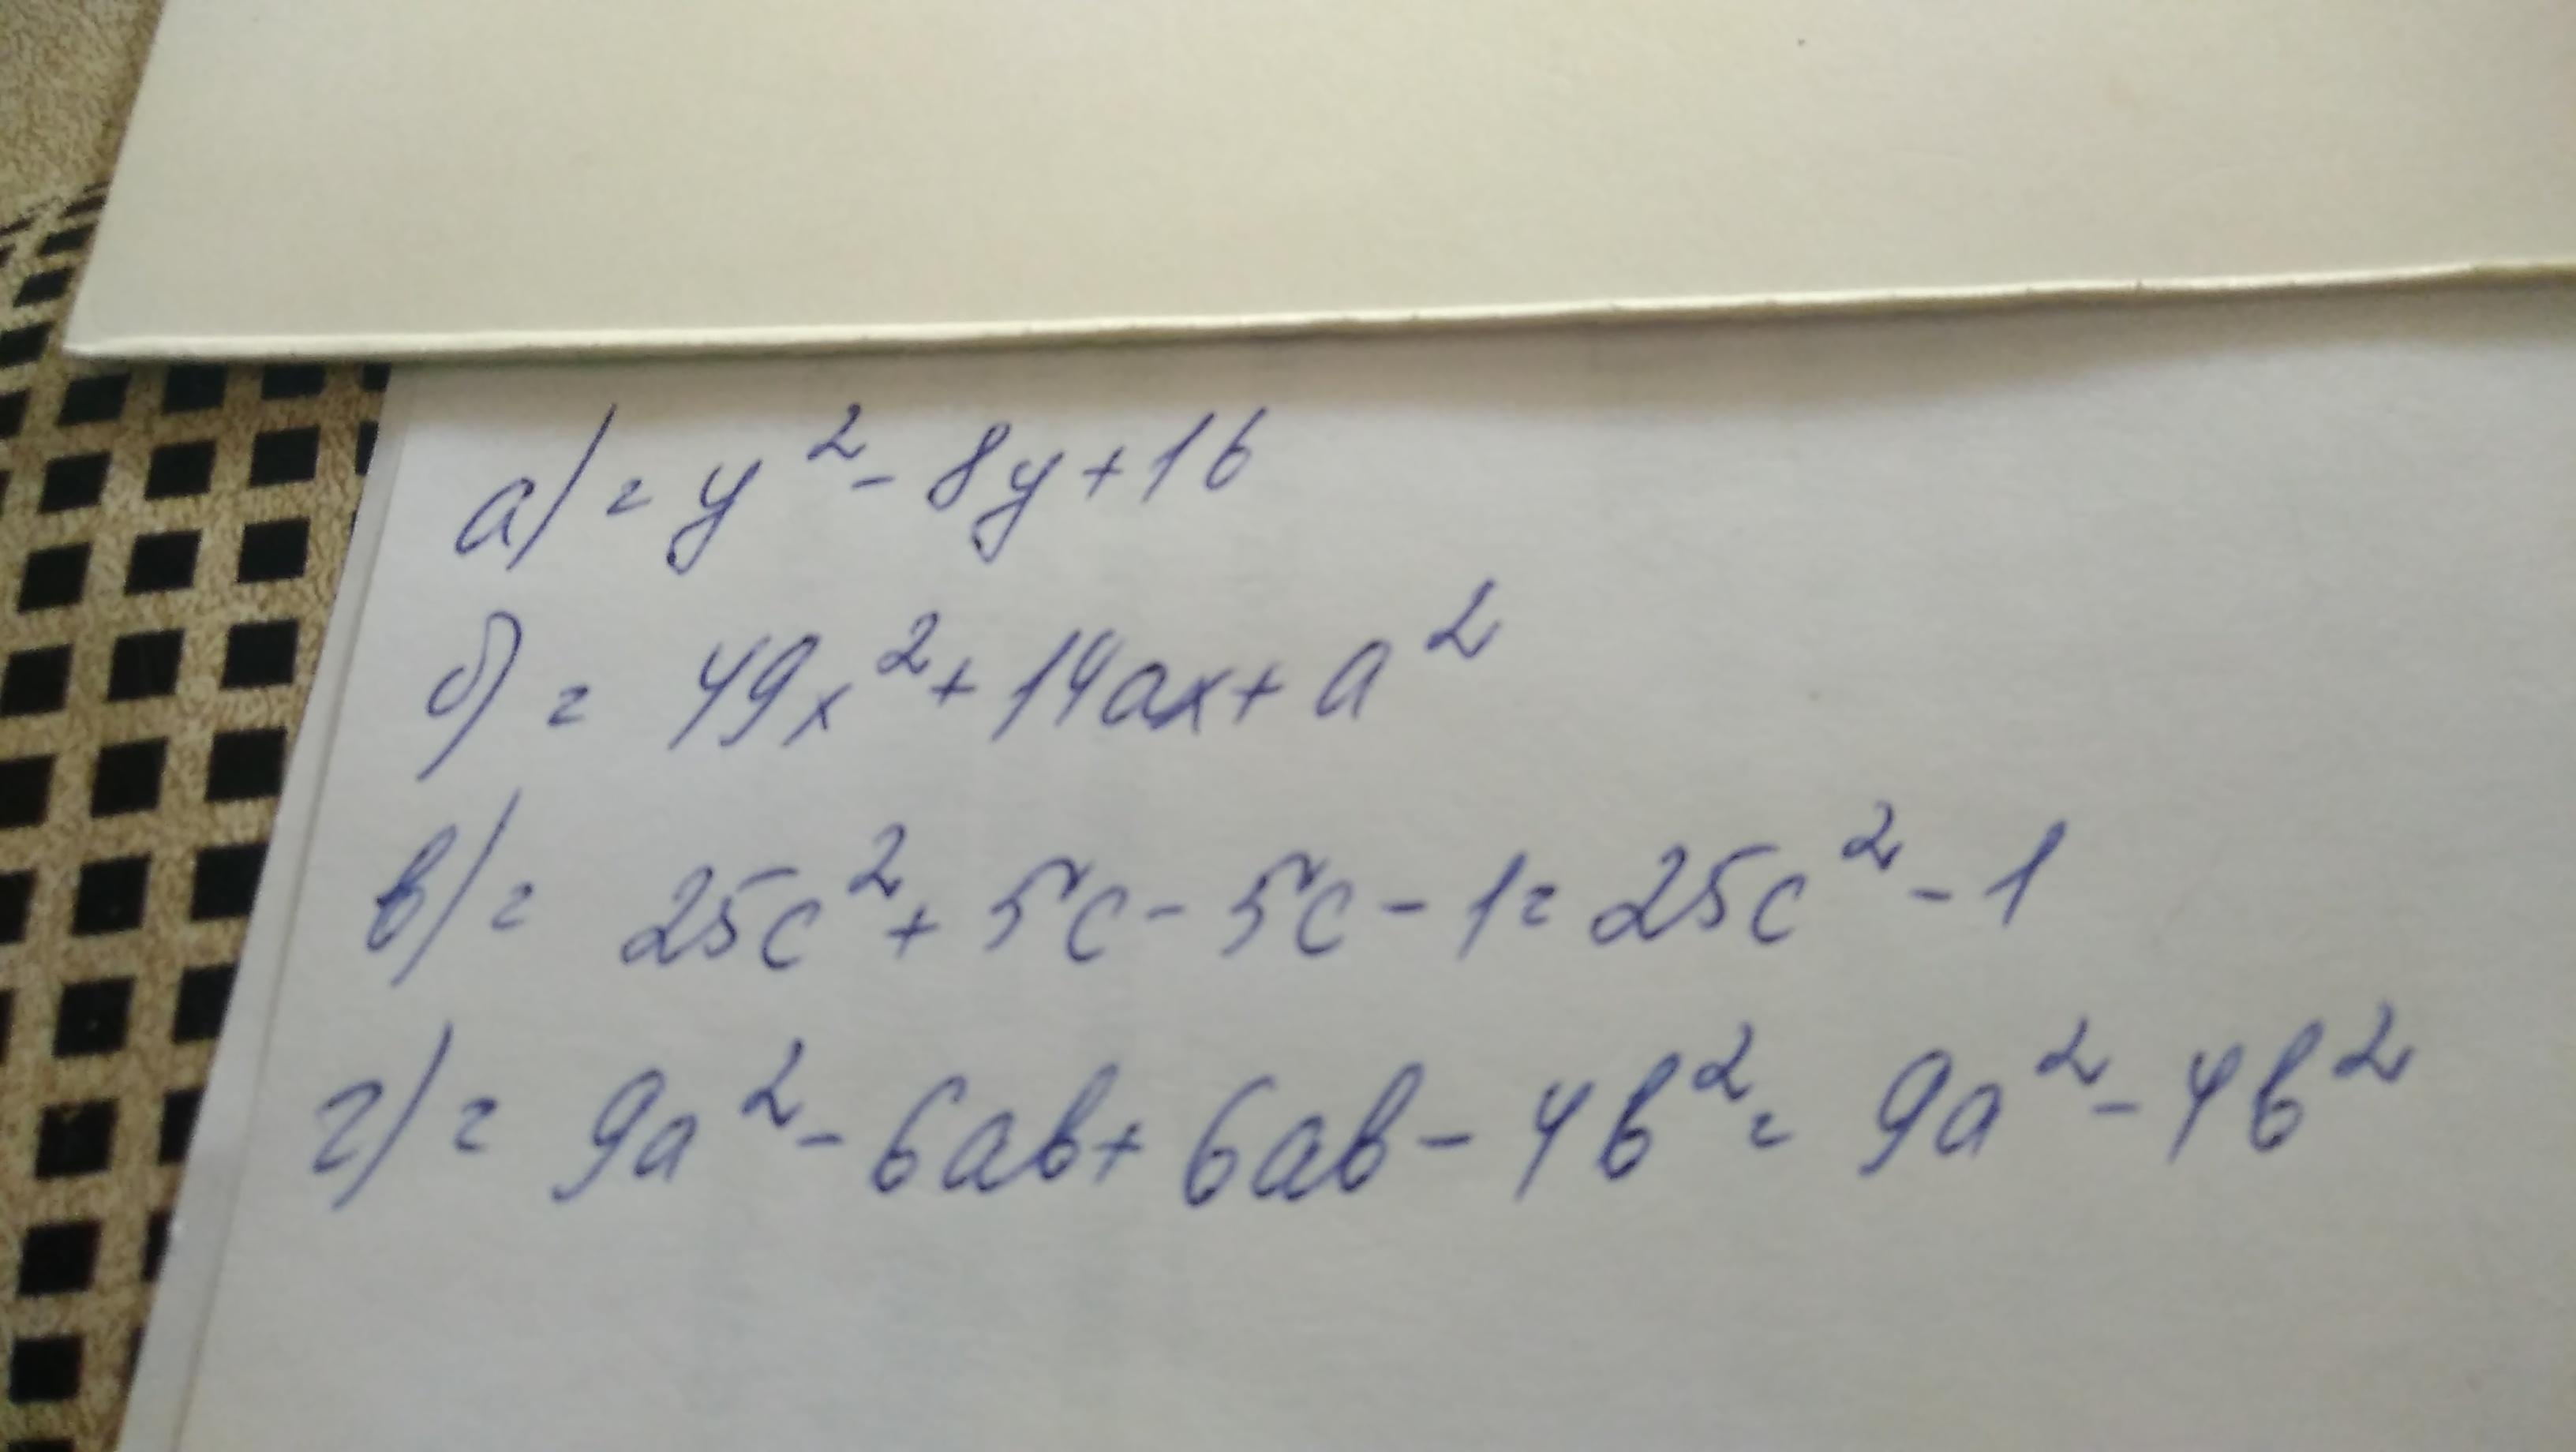 а) = y² - 8y + 16
б) = 49x² + 14ax + a²
в) = 25c² + 5c - 5c - 1 = 25c² - 1
г) = 9a² - 6ab + 6ab - 4b² = 9a² - 4b²